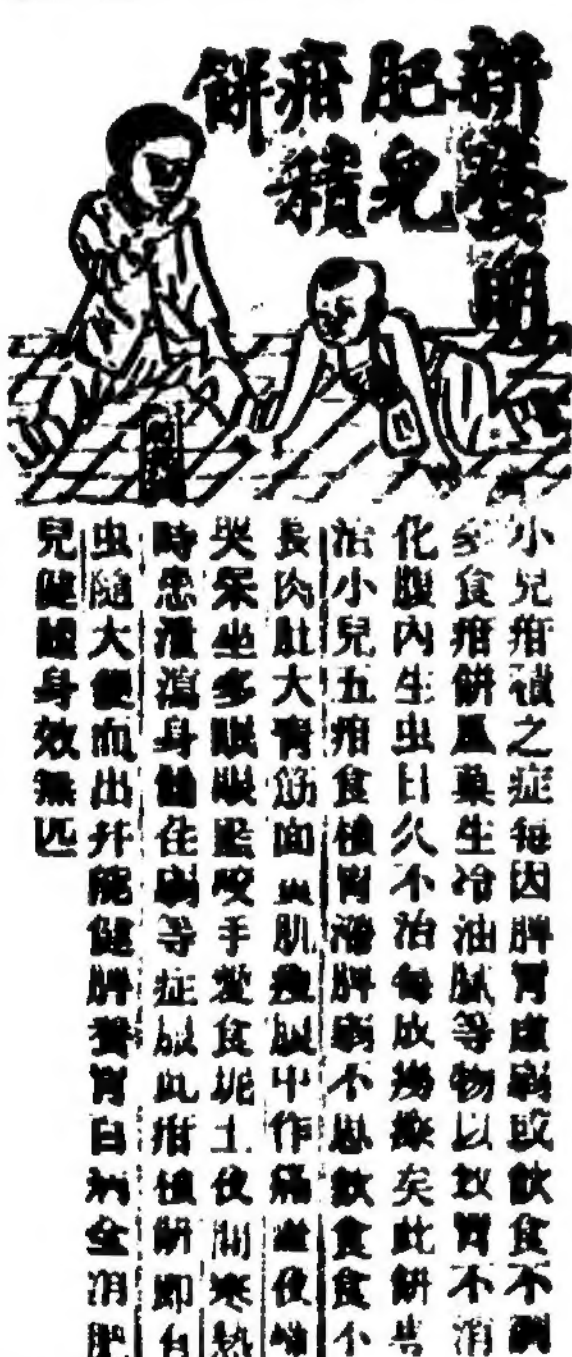 新發明
肥兒
疳積
餅
小兒疳積之症每因脾胃虛弱或飲食不調
多食疳餅瓜菓生冷油膩等物以致胃不消
化腹內生虫日久不治每成癆瘵矣此餅專
治小兒五疳食積胃滯脾弱不思飲食食不
長肉肚大青筋面黃肌瘦腹中作痛晝夜啼
哭呆坐多眼眼朦咬手愛食坭土夜間寒熱
時患洩瀉身體佳弱等症服此疳積餅即有
虫隨大便而出并能健脾養胃百病全消肥
兒健體身效無匹